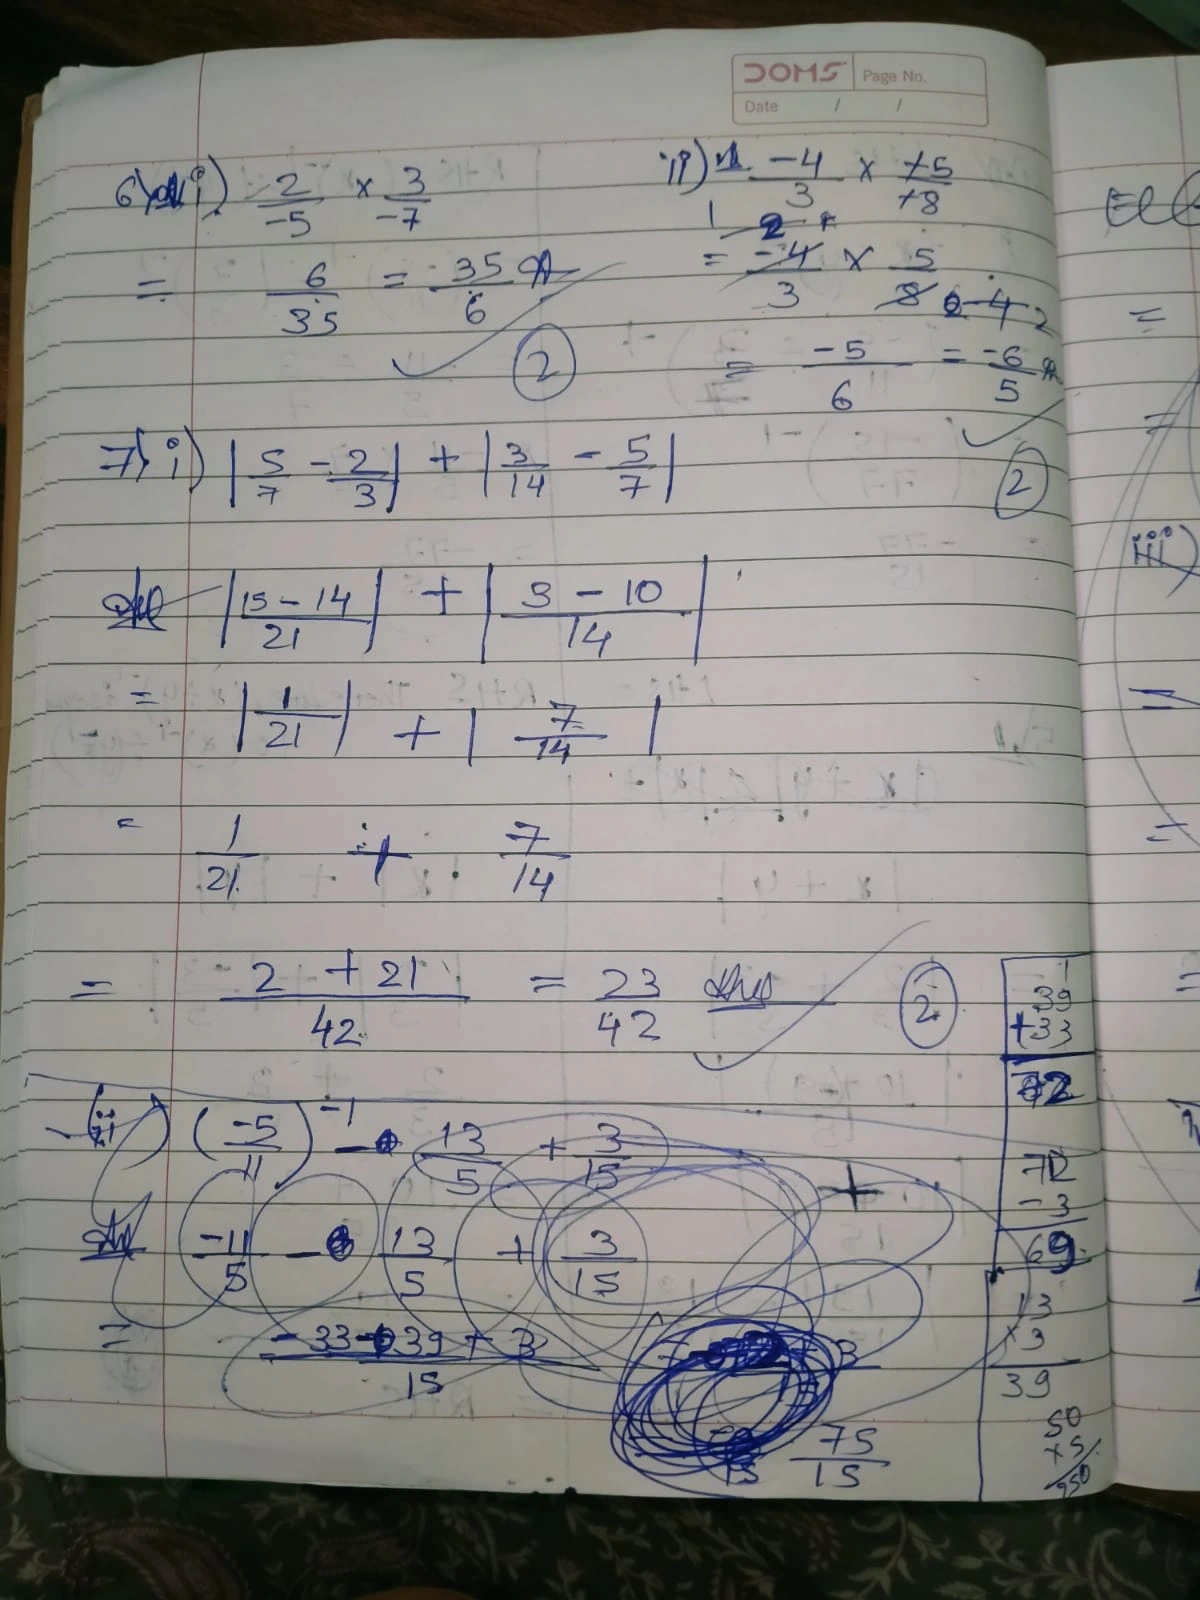 DOMS Page No.
Date / /
6) i) 2/-5 × 3/-7
= 6/35 = 35/6
2
ii) -4/3 × +5/+8
= -4/3 × 5/8
= -5/6 = -6/5
2
7) i) |5/7 - 2/3| + |3/14 - 5/7|
|15 - 14/21| + |3 - 10/14|
= |1/21| + |7/14|
= 1/21 + 7/14
= 2 + 21/42 = 23/42 Ans
2
39
+33
72
ii) (-5/11)^-1 - 13/5 + 3/15
Ans -11/5 - 13/5 + 3/15
= -33 - 39 + 3/15
75/15
72
- 3
69
13
× 3
39
50
× 5
iii)